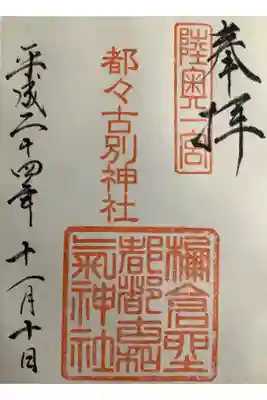 奉拝
陸奥一宮
都々古別神社
倉
都都古和
氣神社
平成二十四年 十一月十日